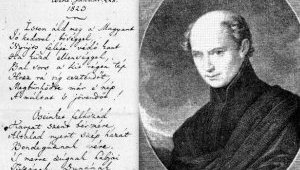 1823
Isten áldd meg a Magyart
Jó kedvel, bőséggel,
Nyújts feléje védő kart
Ha küzd ellenséggel,
Bal sors a kit régen tép
Hozz rá víg esztendőt,
Megbűnhődte már e nép
A multat s jövendőt.
Őseinket felhozád
Kárpát szent bérczére
Általad nyert szép hazát
Bendegúznak vére.